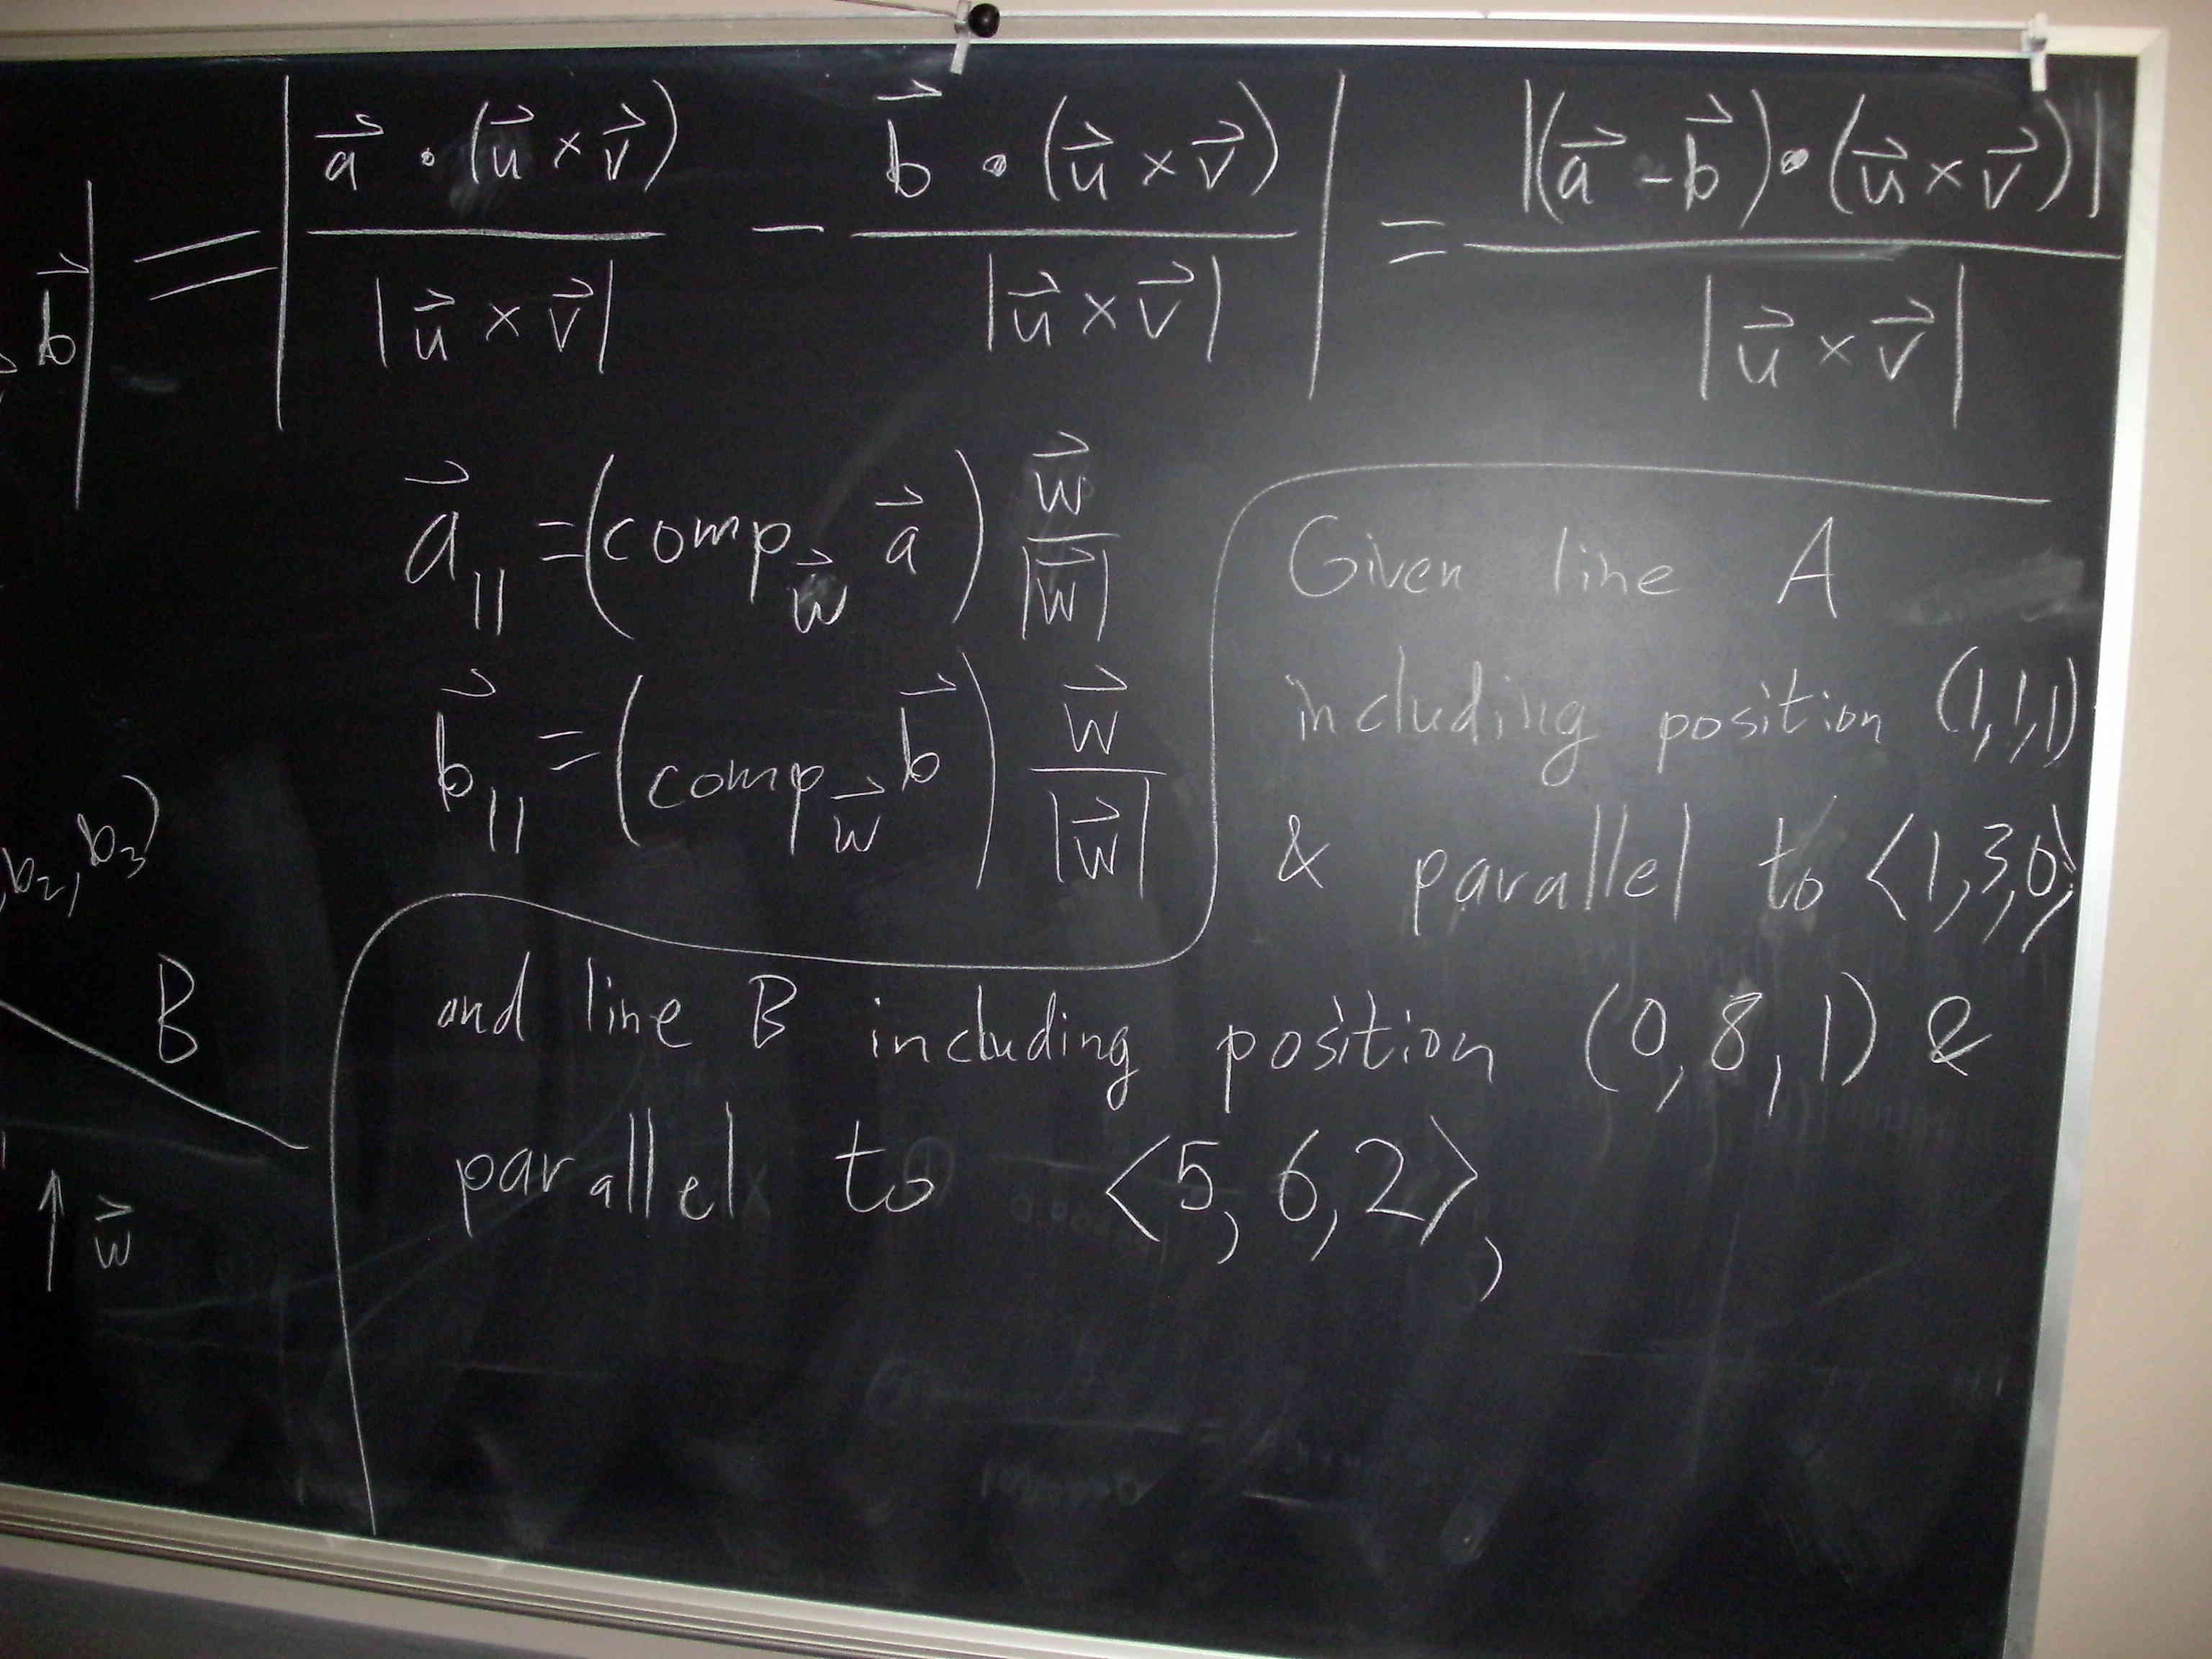 b⃗| = |a⃗ · (u⃗ × v⃗) / |u⃗ × v⃗| − b⃗ · (u⃗ × v⃗) / |u⃗ × v⃗|| = |(a⃗ - b⃗) · (u⃗ × v⃗)| / |u⃗ × v⃗|
a⃗∥ = (comp_w⃗ a⃗) w⃗/|w⃗|
b⃗∥ = (comp_w⃗ b⃗) w⃗/|w⃗|
, b₂, b₃)
B
↑ w⃗
Given line A
including position (1,1,1)
& parallel to ⟨1,3,0⟩,
and line B including position (0,8,1) &
parallel to ⟨5,6,2⟩,